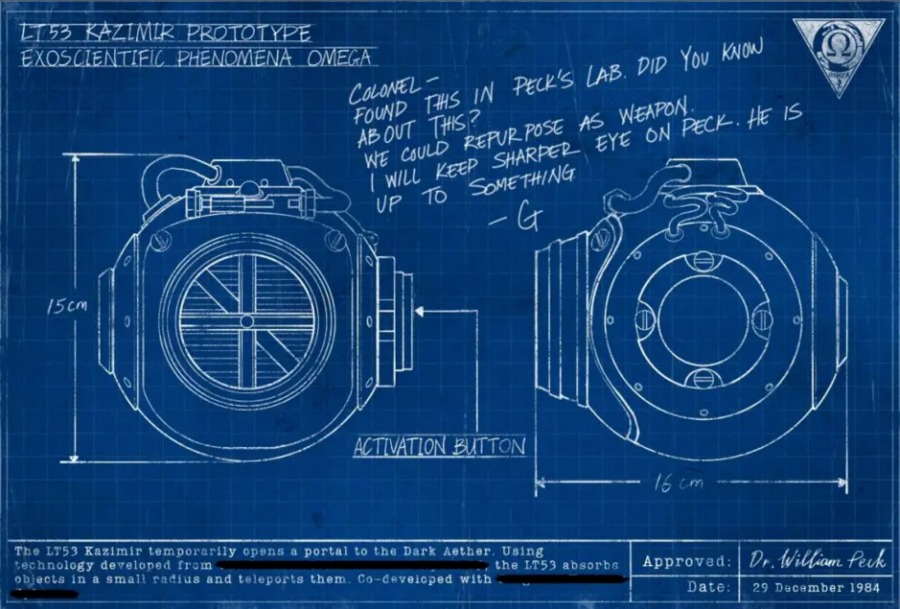 LT53 KAZIMIR PROTOTYPE
EXOSCIENTIFIC PHENOMENA OMEGA
COLONEL—
FOUND THIS IN PECK'S LAB. DID YOU KNOW
ABOUT THIS?
WE COULD REPURPOSE AS WEAPON.
I WILL KEEP SHARPER EYE ON PECK. HE IS
UP TO SOMETHING
— G
Ω
15cm
ACTIVATION BUTTON
16 cm
The LT53 Kazimir temporarily opens a portal to the Dark Aether. Using
technology developed from the LT53 absorbs
objects in a small radius and teleports them. Co-developed with
Approved: Dr. William Peck
Date: 29 December 1984